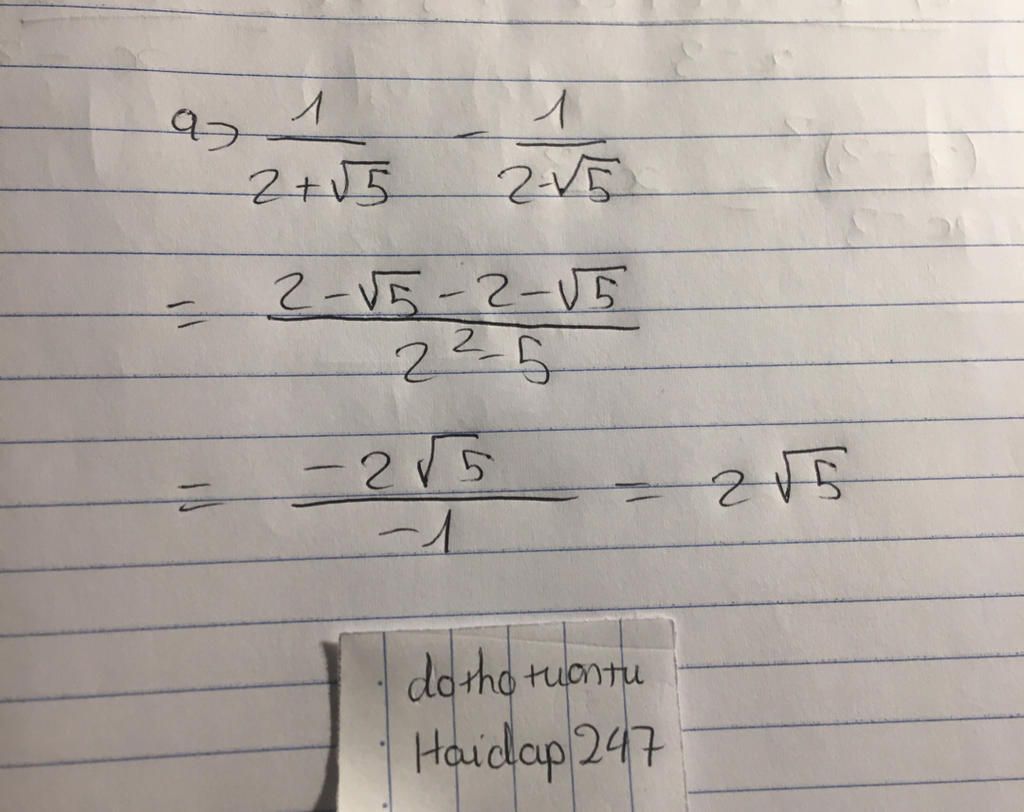 a) 1/(2+√5) - 1/(2-√5)
= (2-√5-2-√5)/(2²-5)
= (-2√5)/(-1) = 2√5
dotho tuantu
Hoidap247